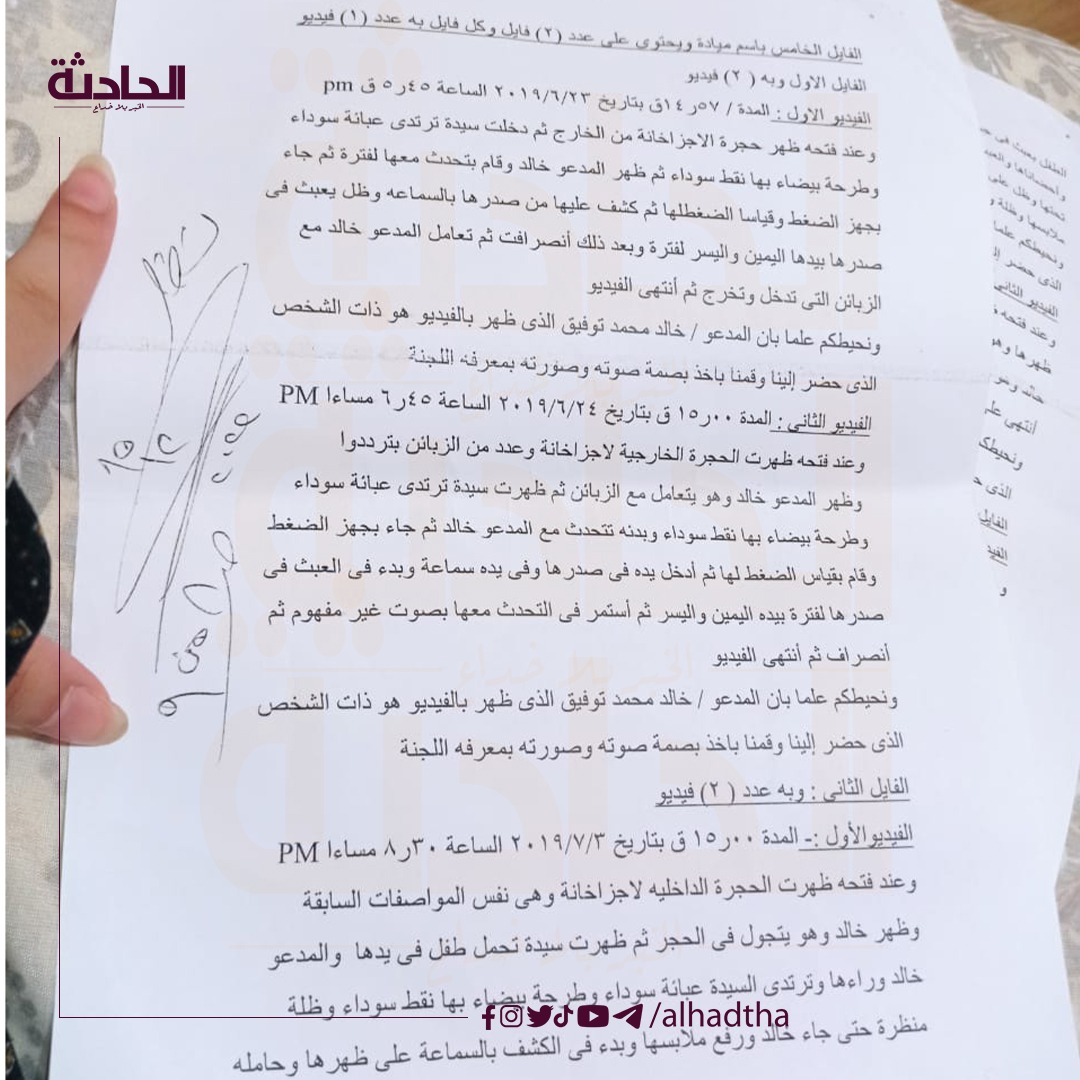 الحادثة
الخبر بلا خداع
الفايل الخامس باسم ميادة ويحتوى على عدد (٢) فايل وكل فايل به عدد (١) فيديو
الفايل الاول وبه ( ٢) فيديو
الفيديو الاول : المدة / ٥٧ر١٤ق بتاريخ ٢٠١٩/٦/٢٣ الساعة ٤٥ر٥ ق pm
وعند فتحه ظهر حجرة الاجزاخانة من الخارج ثم دخلت سيدة ترتدى عبائة سوداء
وطرحة بيضاء بها نقط سوداء ثم ظهر المدعو خالد وقام بتحدث معها لفترة ثم جاء
بجهز الضغط وقياسا الضغطلها ثم كشف عليها من صدرها بالسماعه وظل يعبث فى
صدرها بيدها اليمين واليسر لفترة وبعد ذلك أنصرافت ثم تعامل المدعو خالد مع
الزبائن التى تدخل وتخرج ثم أنتهى الفيديو
ونحيطكم علما بان المدعو / خالد محمد توفيق الذى ظهر بالفيديو هو ذات الشخص
الذى حضر إلينا وقمنا باخذ بصمة صوته وصورته بمعرفه اللجنة
الفيديو الثانى : المدة ٠٠ر١٥ ق بتاريخ ٢٠١٩/٦/٢٤ الساعة ٤٥ر٦ مساءا PM
وعند فتحه ظهرت الحجرة الخارجية لاجزاخانة وعدد من الزبائن بترددوا
وظهر المدعو خالد وهو يتعامل مع الزبائن ثم ظهرت سيدة ترتدى عبائة سوداء
وطرحة بيضاء بها نقط سوداء وبدنه تتحدث مع المدعو خالد ثم جاء بجهز الضغط
وقام بقياس الضغط لها ثم أدخل يده فى صدرها وفى يده سماعة وبدء فى العبث فى
صدرها لفترة بيده اليمين واليسر ثم أستمر فى التحدث معها بصوت غير مفهوم ثم
أنصراف ثم أنتهى الفيديو
ونحيطكم علما بان المدعو / خالد محمد توفيق الذى ظهر بالفيديو هو ذات الشخص
الذى حضر إلينا وقمنا باخذ بصمة صوته وصورته بمعرفه اللجنة
الفايل الثانى : وبه عدد ( ٢) فيديو
الفيديو الأول :- المدة ٠٠ر١٥ ق بتاريخ ٢٠١٩/٧/٣ الساعة ٣٠ر٨ مساءا PM
وعند فتحه ظهرت الحجرة الداخليه لاجزاخانة وهى نفس المواصفات السابقة
وظهر خالد وهو يتجول فى الحجر ثم ظهرت سيدة تحمل طفل فى يدها والمدعو
خالد وراءها وترتدى السيدة عبائة سوداء وطرحة بيضاء بها نقط سوداء وظلة
منظرة حتى جاء خالد ورفع ملابسها وبدء فى الكشف بالسماعة على ظهرها وحامله
الطفل يعبث فى
ملابسها وظلة
ونحيطكم علما
الذى حضر
الفيديو الثانى
وعند فتحه
ظهرها وهو
خالد وهو
أنتهى
ونحيطكم
الذى
الفايل
الفيد
و
/alhadtha